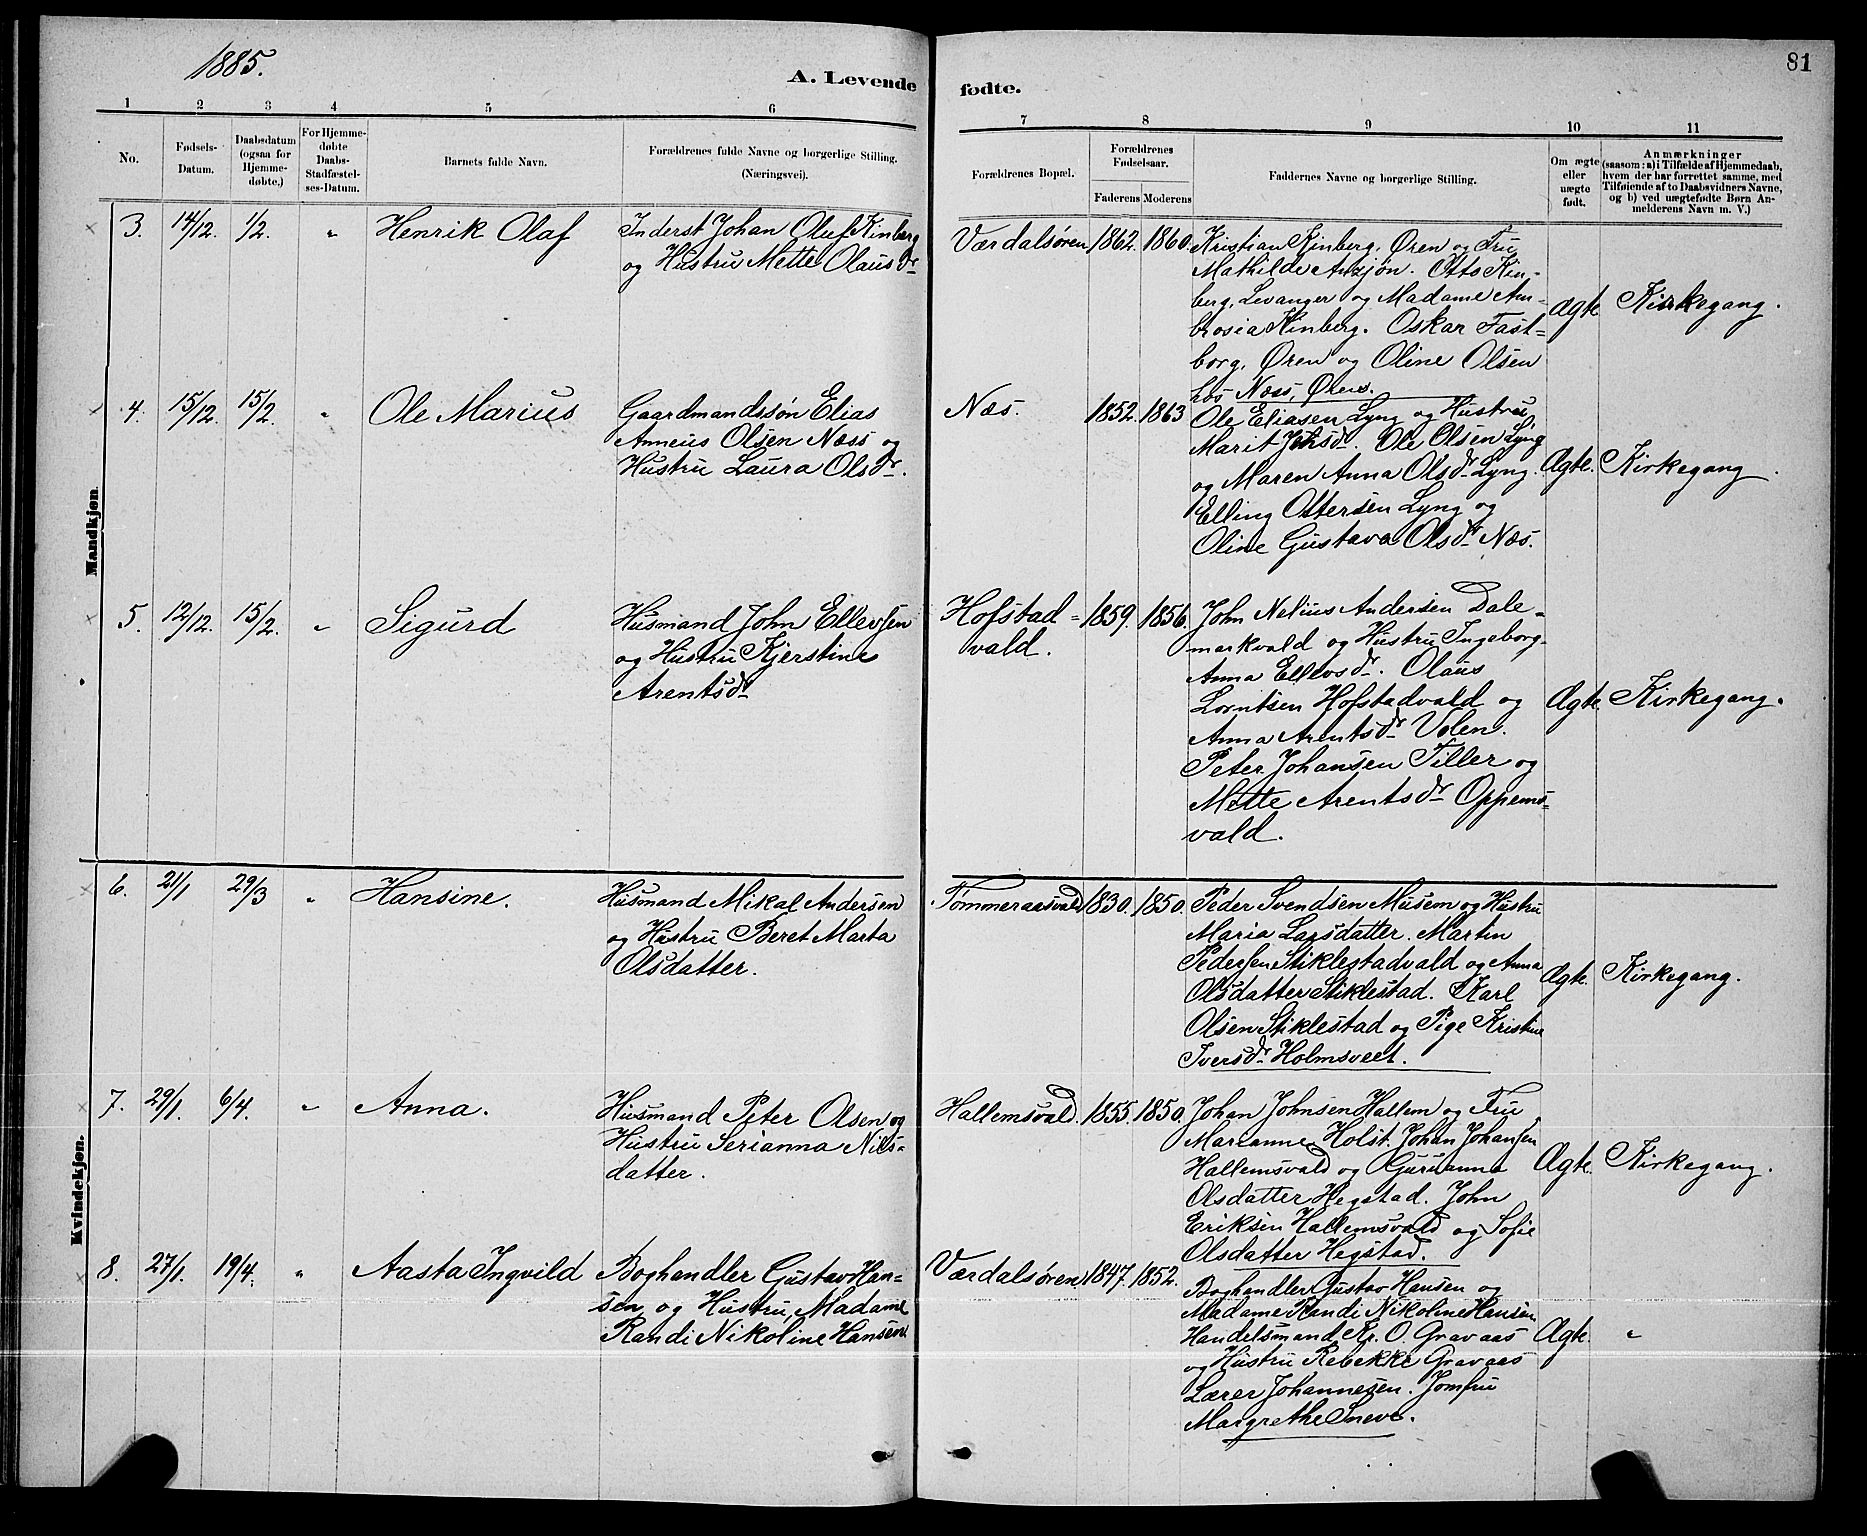 1885.
81
A. Levende fødte.
1 2 3 4 5 6 7 8 9 10 11
No.
Fødsels-
Datum.
Daabsdatum
(ogsaa for
Hjemme-
døbte.)
For Hjemme-
døbte
Daabs-
Stadfæstel-
ses-Datum.
Barnets fulde Navn.
Forældrenes fulde Navne og borgerlige Stilling.
(Næringsvei).
Forældrenes Bopæl.
Forældrenes
Fødselsaar.
Faderens Moderens
Faddernes Navne og borgerlige Stilling.
Om ægte
eller
uægte
født.
Anmærkninger
(saasom: a) i Tilfælde af Hjemmedaab,
hvem der har forrettet samme, med
Tilføiende af to Daabsvidners Navne,
og b) ved uægtefødte Børn An-
melderens Navn m. V.)
Mandkjøn.
3. 14/12. 1/2. " Henrik Olaf
Inderst Johan Oluf Kinberg
og Hustru Mette Olausdr
Værdalsøren 1862. 1860.
Kristian Kinberg, Øren og Fru
Mathilde Arzjøn. Otto Kin-
berg, Levanger og Madame Am-
brosia Kinberg. Oskar Fast-
borg, Øren og Oline Olsen
hos Næss, Øren.
Ægte Kirkegang.
4. 15/12. 15/2. " Ole Marius
Gaardmandssøn Elias
Anneus Olsen Næss og
Hustru Laura Olsdr.
Næs. 1852. 1863
Ole Eliasen Lyng og Hustru
Marit Johsd. Ole Olsen Lyng
og Maren Anna Olsdr Lyng.
Elling Ottersen Lyng og
Oline Gustava Olsdr Næs.
Ægte. Kirkegang.
5. 12/12. 15/2. " Sigurd
Husmand John Ellevsen
og Hustru Kjerstine
Arentsdr
Hofstad=
vald.
1859. 1856.
John Nelius Andersen Dale-
markvald og Hustru Ingeborg-
Anna Ellevsdr. Olaus
Lorntsen Hofstadvald og
Anna Arentsdr Volen.
Peter Johansen Tiller og
Mette Arentsdr Oppems=
vald.
Ægte. Kirkegang.
Kvindekjøn.
6. 21/1 29/3 " Hansine.
Husmand Mikal Andersen
og Hustru Beret Marta
Olsdatter.
Tømmeraasvald 1830. 1850.
Peder Svendsen Musem og Hustru
Maria Larsdatter. Martin
Pedersen Stiklestadvald og Anna
Olsdatter Stiklestad. Karl
Olsen Stiklestad og Pige Kristine
Iversdr Holmsveet.
Ægte. Kirkegang.
7. 29/1. 6/4. " Anna.
Husmand Peter Olsen og
Hustru Serianna Nils-
datter.
Hallemsvald. 1855. 1850.
Johan Johnsen Hallem og Fru
Marianne Holst. Johan Johansen
Hallemsvald og Gurianna
Olsdatter Hegstad. John
Eriksen Hallemsvald og Sofie
Olsdatter Hegstad.
Ægte. Kirkegang.
8. 27/1. 19/4. " Aasta Ingvild
Boghandler Gustav Han=
sen og Hustru, Madame
Randi Nikoline Hansen.
Værdalsøren 1847. 1852.
Boghandler Gustav Hansen og
Madame Randi Nikoline Hansen
Handelsmand Kr. O. Gravaas
og Hustru Rebekke Gravaas
Lærer Johannesen. Jomfru
Margrethe Sneve.
Ægte. "